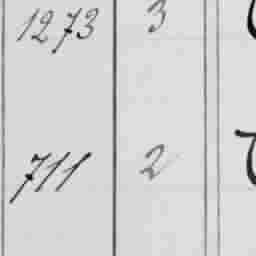 1273 3
711 2